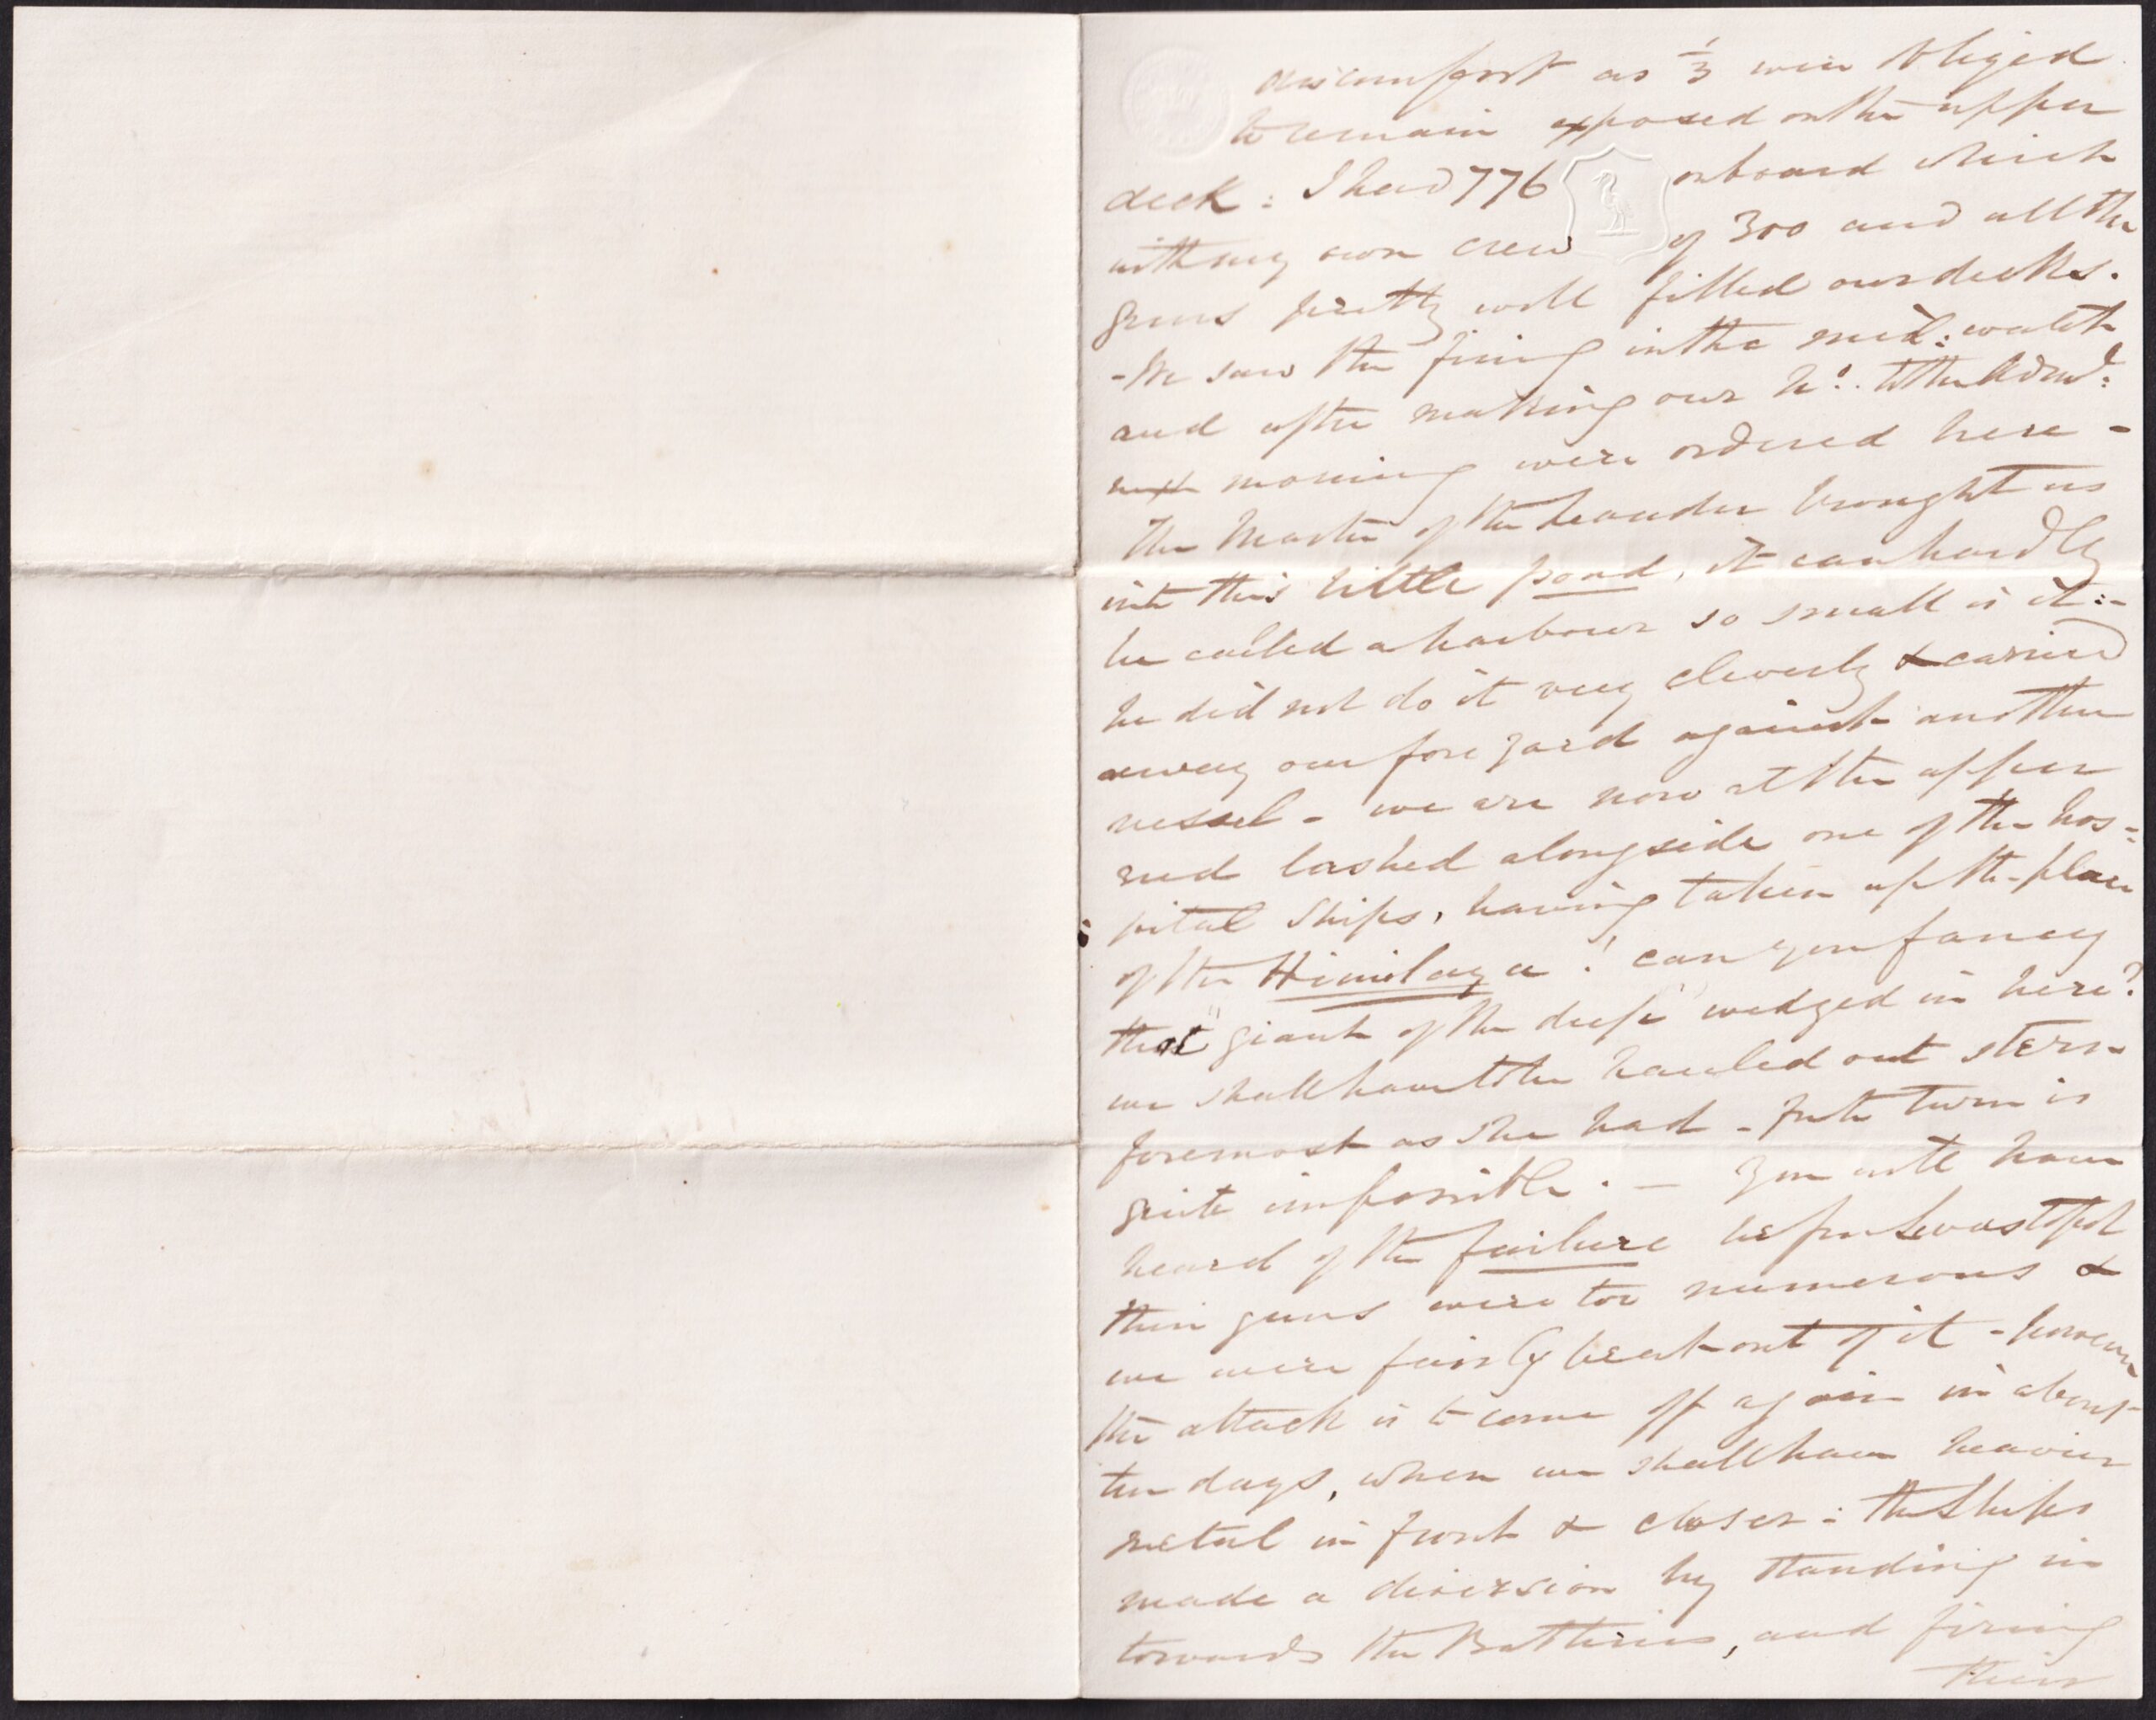 discomfort as ⅓ were obliged
to remain exposed on the upper
deck: I had 776 onboard which
with my own crew of 300 and all the
guns pretty well filled our decks.
- We saw the firing in the mid: watch
and after making our No.. to the Adml:
next morning were ordered here -
The Master of the Leander brought us
into this little pond, it can hardly
be called a harbour so small is it:-
he did not do it very cleverly & carried
away our fore yard against another
vessel - we are now at the upper
end lashed alongside one of the hos=
pital ships, having taken up the place
of the Himilaya! can you fancy
that "giant of the deep" wedged in here?
we shall have to be hauled out stern
foremost as she had - for to turn is
quite impossible. — You will have
heard of the failure before Sevastopol
their guns were too numerous &
we were fairly beat out of it - however
the attack is to come off again in about
ten days, when we shall have heavier
metal in front & closer: the Ships
made a diversion by standing in
towards the Batteries, and firing
their